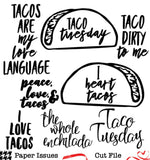 TACOS
ARE
MY
love
LANGUAGE
TACO
tuesday
TACO
DIRTY
TO ME
peace,
love &
tacos
I
heart
tacos
I
LOVE
TACOS
the
whole
enchilada
Taco
Tuesday
Paper Issues
Cut File